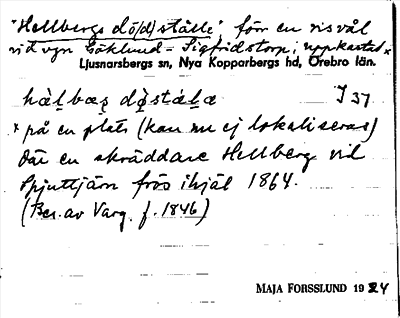 "Hellbergs dö(d)ställe", förr en risvål
vid vgn Löklund - Sigfridstorp; uppkastad x
Ljusnarsbergs sn, Nya Kopparbergs hd, Örebro län.
hälbæȥ dǿstälæ I 37
x på en plats (kan nu ej lokaliseras)
där en skräddare Hellberg vid
Spjuttjärn frös ihjäl 1864.
(Ber. av Varg, f. 1846)
MAJA FORSSLUND 1924